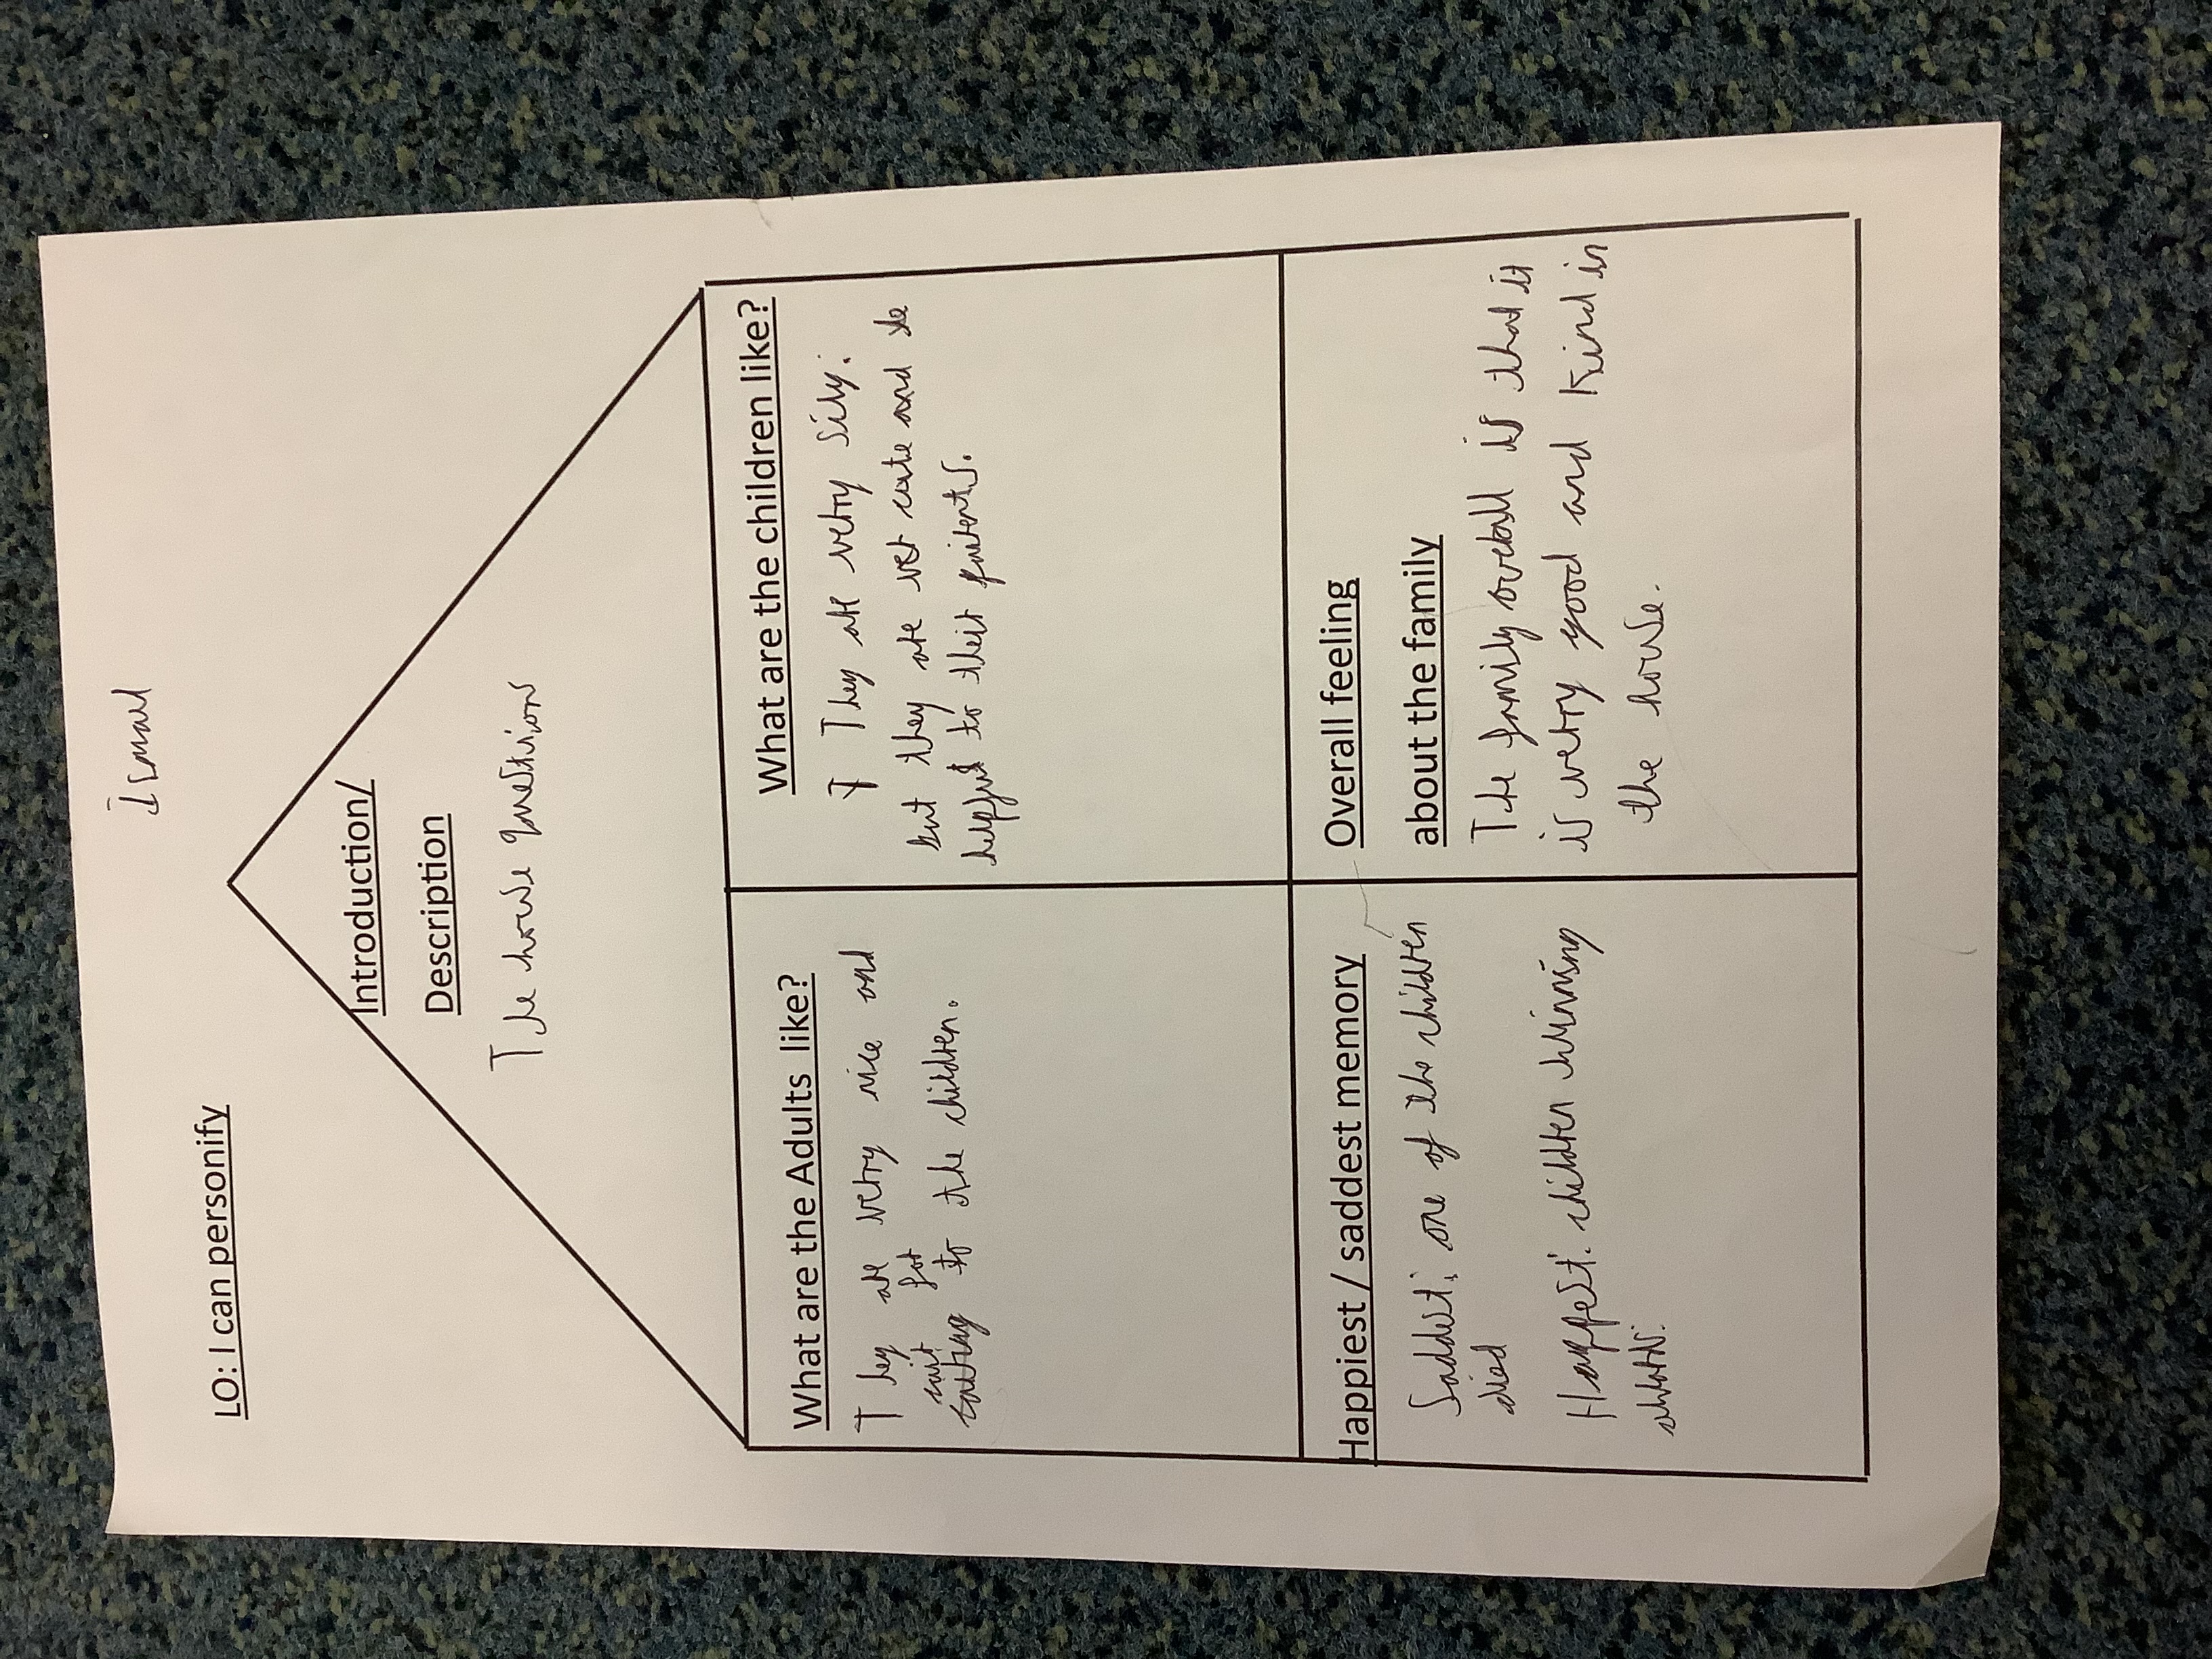 LO: I can personify
Ismail
Introduction/
Description
The house questions
What are the Adults like?
They are very nice and
for
caring to the children.
What are the children like?
They are very sily.
but they are very cute and
helpful to their parents.
Happiest / saddest memory
Saddest: one of the children
died
Happest: children winning
Overall feeling
about the family
The family overall is that it
is very good and kind in
the house.